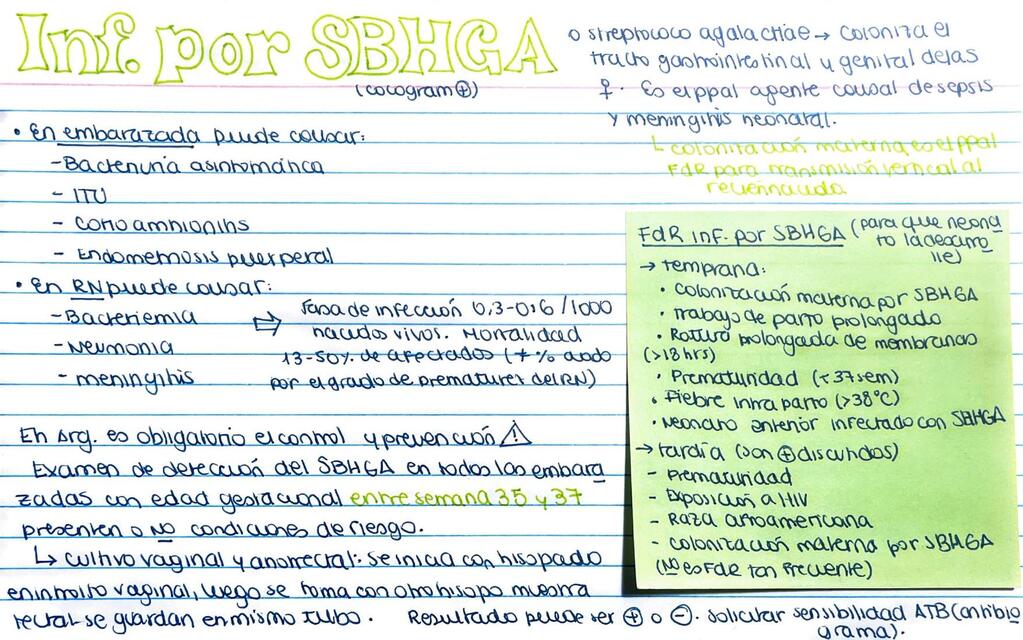 Inf. por SBHGA
(cocogram ⊕)
o streptococo agalactiae → coloniza el
tracto gastrointestinal y genital de las
♀. Es el ppal agente causal de sepsis
y meningitis neonatal.
↳ colonización materna es el ppal
FdR para transmisión vertical al
recien nacido
• En embarazada puede causar:
- Bacteriuria asintomática
- ITU
- Corioamnionitis
- Endometriosis puerperal
• En RN puede causar:
- Bacteriemia
- Neumonia
- meningitis
⇨ Tasa de infección 0,3-0,6 /1000
nacidos vivos. Mortalidad
13-50% de afectados (+ % dado
por el grado de prematurez del RN)
En Arg. es obligatorio el control y prevención ⚠
Examen de detección del SBHGA en todas las embara
zadas con edad gestacional entre semana 35 y 37
presenten o NO condiciones de riesgo.
↳ Cultivo vaginal y anorrectal: se inicia con hisopado
en introito vaginal, luego se toma con otro hisopo muestra
rectal se guardan en mismo tubo. Resultado puede ser ⊕ o ⊖. Solicitar sensibilidad ATB (antibio
grama).
FdR inf. por SBHGA (para que neona
to la desarro
lle)
→ temprana:
• colonización materna por SBHGA
• trabajo de parto prolongado
• Rotura prolongada de membranas
(>18 hrs)
• Prematuridad (<37 sem)
• Fiebre intra parto (>38°C)
• Neonato anterior infectado con SBHGA
→ tardía (son ⊕ discutidos)
- Prematuridad
- Exposición a HIV
- Raza afroamericana
- colonización materna por SBHGA
(NO es FdR tan frecuente)